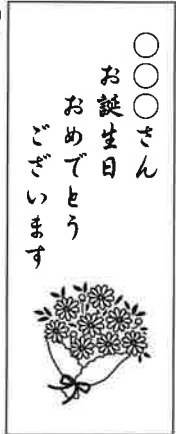 ○○○さん
お誕生日
おめでとう
ございます